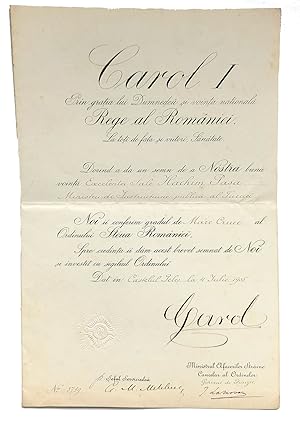 Carol I
Prin gratia lui Dumnedeu și vointa natională
Rege al României.
La toți de fată și viitori Sănătate.
Dorind a da un semn de a Nóstra buna
vointă Excelentei Sale Hachim Pașa
Ministru de Instructiune publică al Turciei
Noi îi conferim gradul de Mare Cruce al
Ordinului Steua României.
Spre credintă îi dam acest brevet semnat de Noi
și investit cu sigiliul Ordinului
Dat în Castelul Peleș la 4 Iulie
Carol
Ministrul Afacerilor Străine
Cancelar al Ordinelor
p. Șeful Serviciului
J. Lahovari
No.